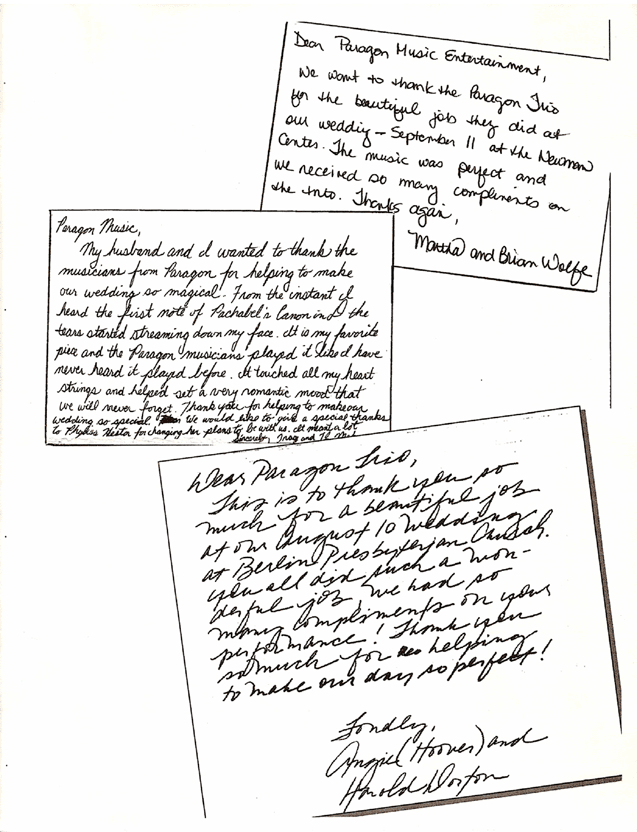 Dear Paragon Music Entertainment,
We want to thank the Paragon Trio
for the beautiful job they did at
our wedding - September 11 at the Newman
Center. The music was perfect and
we received so many compliments on
the trio. Thanks again,
Martha and Brian Wolfe
Paragon Music,
My husband and I wanted to thank the
musicians from Paragon for helping to make
our wedding so magical. From the instant I
heard the first note of Pachabel's Canon in D the
tears started streaming down my face. It is my favorite
piece and the Paragon musicians played it like I have
never heard it played before. It touched all my heart
strings and helped set a very romantic mood that
we will never forget. Thank you for helping to make our
wedding so special. We would like to give a special thanks
to Phyllis Hester for changing her plans to be with us. It meant a lot.
Sincerely, Tracy and
Dear Paragon Trio,
This is to thank you so
much for a beautiful job
at our August 10 wedding
at Berlin Presbyterian Church.
You all did such a won-
derful job. We had so
many compliments on your
performance! Thank you
so much for helping
to make our day so perfect!
Fondly,
Angie (Hoover) and
Harold Dorton